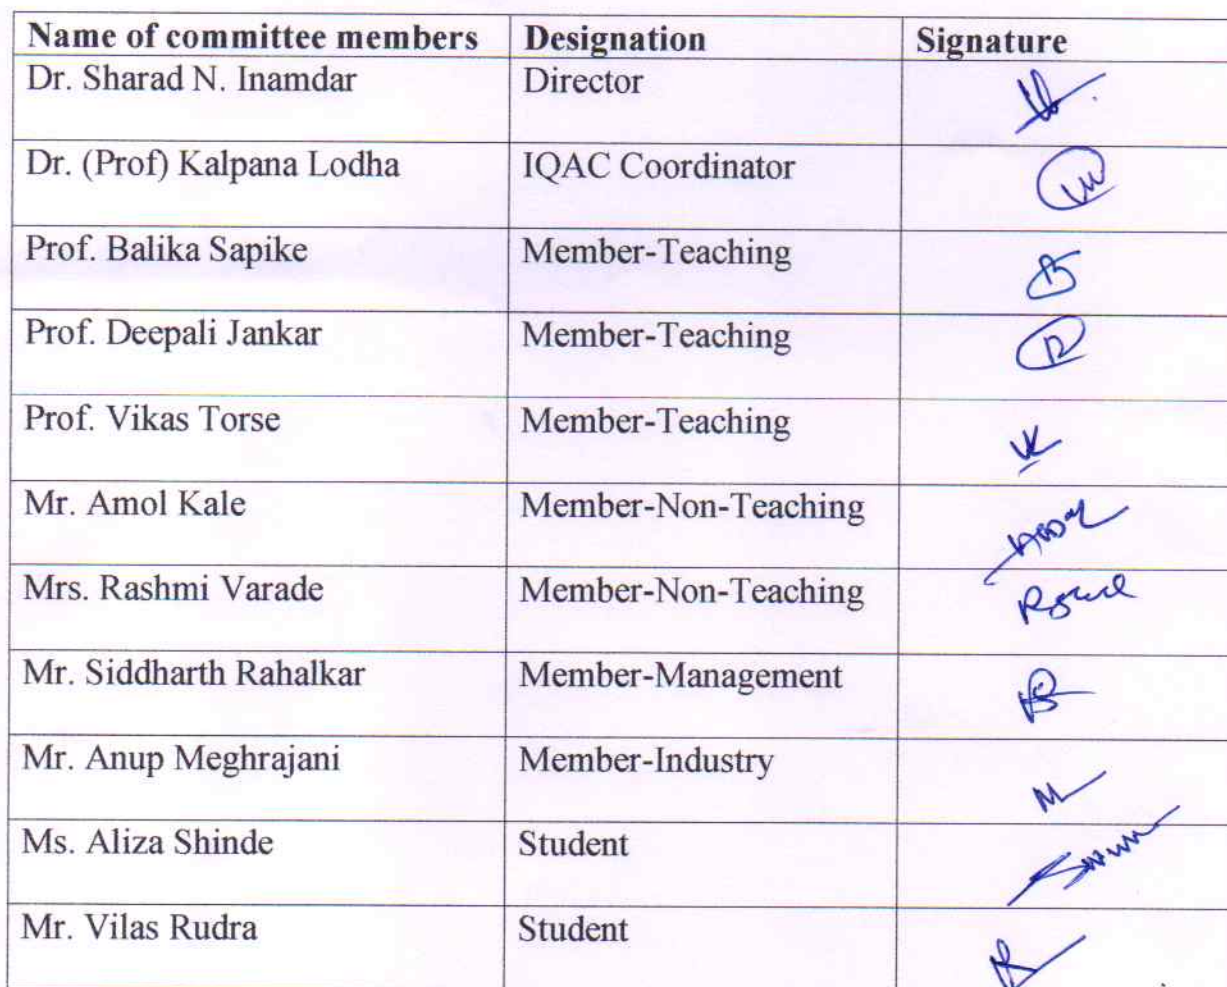 Name of committee members Designation Signature
Dr. Sharad N. Inamdar Director
Dr. (Prof) Kalpana Lodha IQAC Coordinator
Prof. Balika Sapike Member-Teaching
Prof. Deepali Jankar Member-Teaching
Prof. Vikas Torse Member-Teaching
Mr. Amol Kale Member-Non-Teaching
Mrs. Rashmi Varade Member-Non-Teaching
Mr. Siddharth Rahalkar Member-Management
Mr. Anup Meghrajani Member-Industry
Ms. Aliza Shinde Student
Mr. Vilas Rudra Student